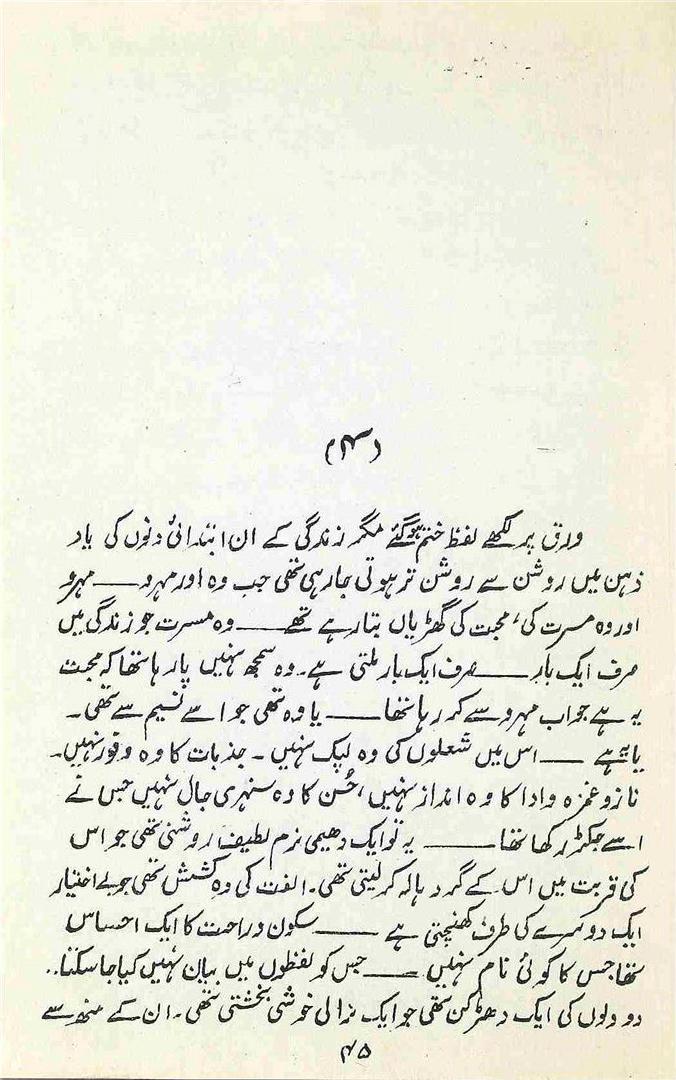 (۴)
ورق پر لکھے لفظ ختم ہو گئے مگر زندگی کے ان ابتدائی دنوں کی یاد
ذہن میں روشن سے روشن تر ہوتی جا رہی تھی جب وہ اور مہرو ــــ مہرو
اور وہ مسرت کی، محبت کی گھڑیاں بتا رہے تھے ــــ وہ مسرت جو زندگی میں
صرف ایک بار ــــ صرف ایک بار ملتی ہے۔ وہ سمجھ نہیں پا رہا تھا کہ محبت
یہ ہے جو اب مہرو سے کر رہا تھا ــــ یا وہ تھی جو اسے نسیم سے تھی۔
یا یہ ہے ــــ اس میں شعلوں کی وہ لپک نہیں۔ جذبات کا وہ وفور نہیں۔
ناز و غمزہ و ادا کا وہ انداز نہیں، حُسن کا وہ سنہری جال نہیں جس نے
اسے جکڑ رکھا تھا ــــ یہ تو ایک دھیمی نرم لطیف روشنی تھی جو اس
کی قربت میں اس کے گرد ہالہ کر لیتی تھی۔ الفت کی وہ کشش تھی جو بے اختیار
ایک دوسرے کی طرف کھینچتی ہے ــــ سکون و راحت کا ایک احساس
تھا جس کا کوئی نام نہیں ــــ جس کو لفظوں میں بیان نہیں کیا جا سکتا..
دو دلوں کی ایک دھڑکن تھی جو ایک نرالی خوشی بخشتی تھی۔ ان کے منھ سے
۴۵